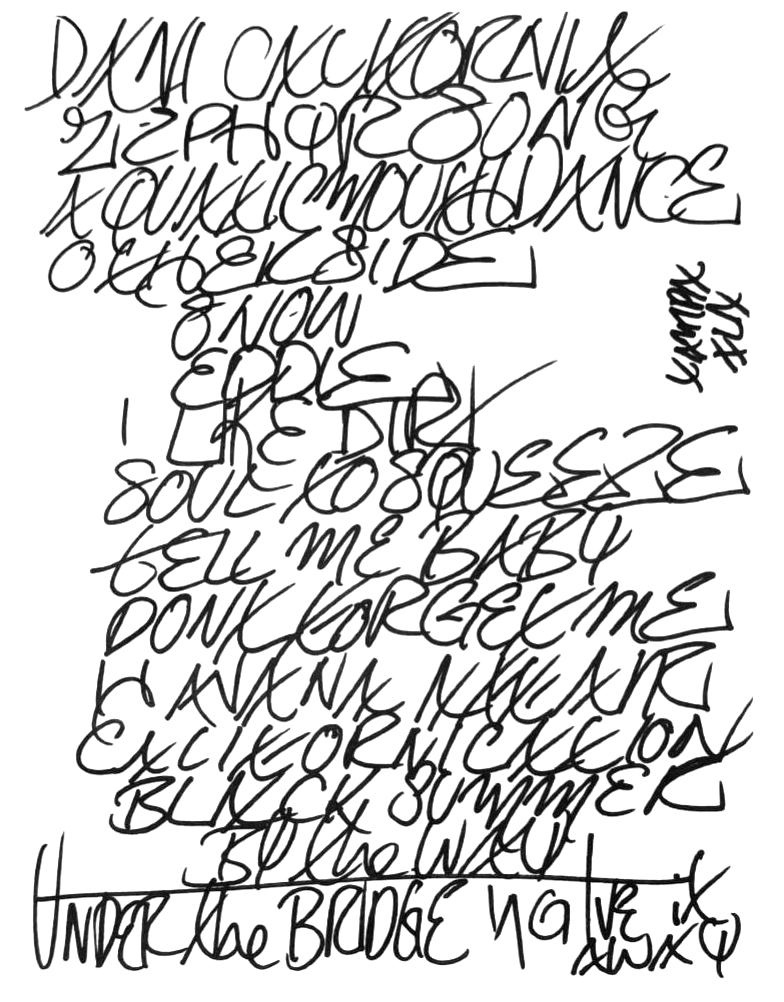 DANI CALIFORNIA
ZEPHYR SONG
AQUATIC MOUTH DANCE
OTHERSIDE
SNOW
EDDIE
I LIKE DIRT
SOUL TO SQUEEZE
TELL ME BABY
DONT FORGET ME
HAVANA AFFAIR
CALIFORNICATION
BLACK SUMMER
BY the WAY
UNDER the BRIDGE GIVE IT
AWAY